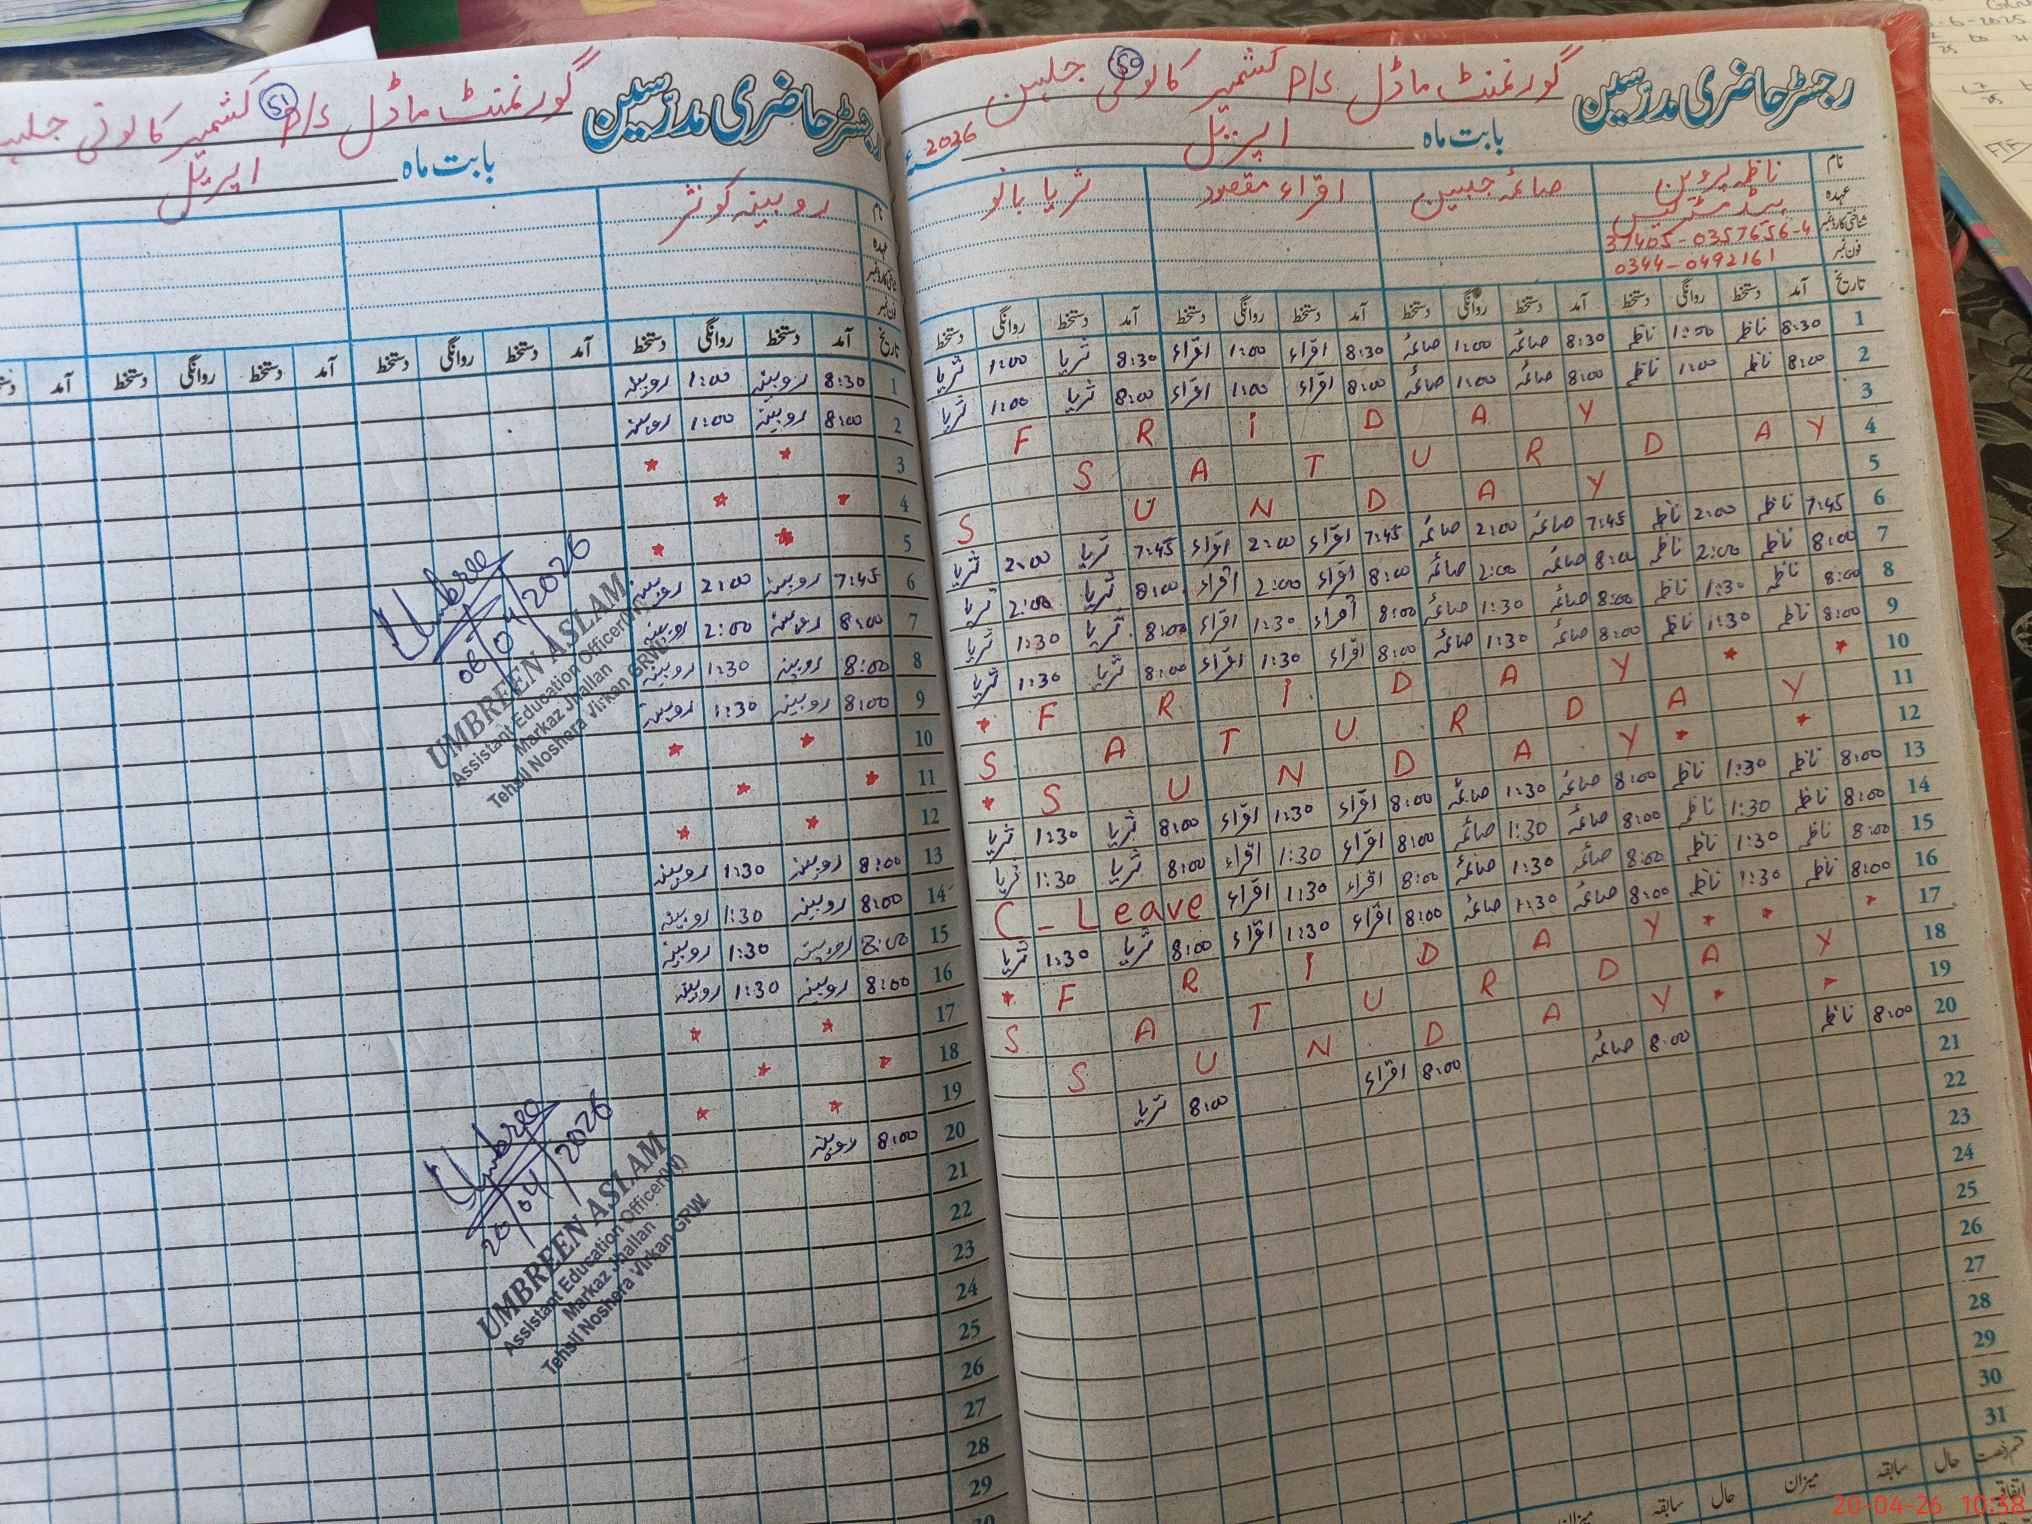 رجسٹر حاضری مدرسین گورنمنٹ ماڈل P/S کشمیر کالونی جلہن 50
بابت ماہ اپریل 2026ء
نام ناظمہ پروین صائمہ جبین اقراء مقصود ثریا بانو
عہدہ ہیڈ مسٹریس
شناختی کارڈ نمبر 37405-0357656-4
فون نمبر 0344-0492161
تاریخ آمد دستخط روانگی دستخط آمد دستخط روانگی دستخط آمد دستخط روانگی دستخط آمد دستخط روانگی دستخط
1 8:30 ناظمہ 1:00 ناظمہ 8:30 صائمہ 1:00 صائمہ 8:30 اقراء 1:00 اقراء 8:30 ثریا 1:00 ثریا
2 8:00 ناظمہ 1:00 ناظمہ 8:00 صائمہ 1:00 صائمہ 8:00 اقراء 1:00 اقراء 8:00 ثریا 1:00 ثریا
3 F R I D A Y
4 S A T U R D A Y
5 S U N D A Y
6 7:45 ناظمہ 2:00 ناظمہ 7:45 صائمہ 2:00 صائمہ 7:45 اقراء 2:00 اقراء 7:45 ثریا 2:00 ثریا
7 8:00 ناظمہ 2:00 ناظمہ 8:00 صائمہ 2:00 صائمہ 8:00 اقراء 2:00 اقراء 8:00 ثریا 2:00 ثریا
8 8:00 ناظمہ 1:30 ناظمہ 8:00 صائمہ 1:30 صائمہ 8:00 اقراء 1:30 اقراء 8:00 ثریا 1:30 ثریا
9 8:00 ناظمہ 1:30 ناظمہ 8:00 صائمہ 1:30 صائمہ 8:00 اقراء 1:30 اقراء 8:00 ثریا 1:30 ثریا
10 F R I D A Y
11 S A T U R D A Y
12 S U N D A Y
13 8:00 ناظمہ 1:30 ناظمہ 8:00 صائمہ 1:30 صائمہ 8:00 اقراء 1:30 اقراء 8:00 ثریا 1:30 ثریا
14 8:00 ناظمہ 1:30 ناظمہ 8:00 صائمہ 1:30 صائمہ 8:00 اقراء 1:30 اقراء 8:00 ثریا 1:30 ثریا
15 8:00 ناظمہ 1:30 ناظمہ 8:00 صائمہ 1:30 صائمہ 8:00 اقراء 1:30 اقراء C_Leave
16 8:00 ناظمہ 1:30 ناظمہ 8:00 صائمہ 1:30 صائمہ 8:00 اقراء 1:30 اقراء 8:00 ثریا 1:30 ثریا
17 F R I D A Y
18 S A T U R D A Y
19 S U N D A Y
20 8:00 ناظمہ 8:00 صائمہ 8:00 اقراء 8:00 ثریا
21
22
23
24
25
26
27
28
29
30
31
حال سابقہ میزان حال سابقہ
رجسٹر حاضری مدرسین گورنمنٹ ماڈل P/S کشمیر کالونی 51
بابت ماہ اپریل
نام روبینہ کوثر
عہدہ
شناختی کارڈ نمبر
فون نمبر
تاریخ آمد دستخط روانگی دستخط آمد دستخط روانگی دستخط آمد دستخط روانگی دستخط آمد
1 8:30 روبینہ 1:00 روبینہ
2 8:00 روبینہ 1:00 روبینہ
3
4
5
6 7:45 روبینہ 2:00 روبینہ
7 8:00 روبینہ 2:00 روبینہ
8 8:00 روبینہ 1:30 روبینہ
9 8:00 روبینہ 1:30 روبینہ
10
11
12
13 8:00 روبینہ 1:30 روبینہ
14 8:00 روبینہ 1:30 روبینہ
15 8:00 روبینہ 1:30 روبینہ
16 8:00 روبینہ 1:30 روبینہ
17
18
19
20 8:00 روبینہ
21
22
23
24
25
26
27
28
29
30
Umbreen
08/04/2026
UMBREEN ASLAM
Assistant Education Officer(W)
Markaz Jhallan
Tehsil Noshera Virkan GRW.
Umbreen
20/04/2026
UMBREEN ASLAM
Assistant Education Officer(W)
Markaz Jhallan
Tehsil Noshera Virkan GRW.
20-04-26 10:38